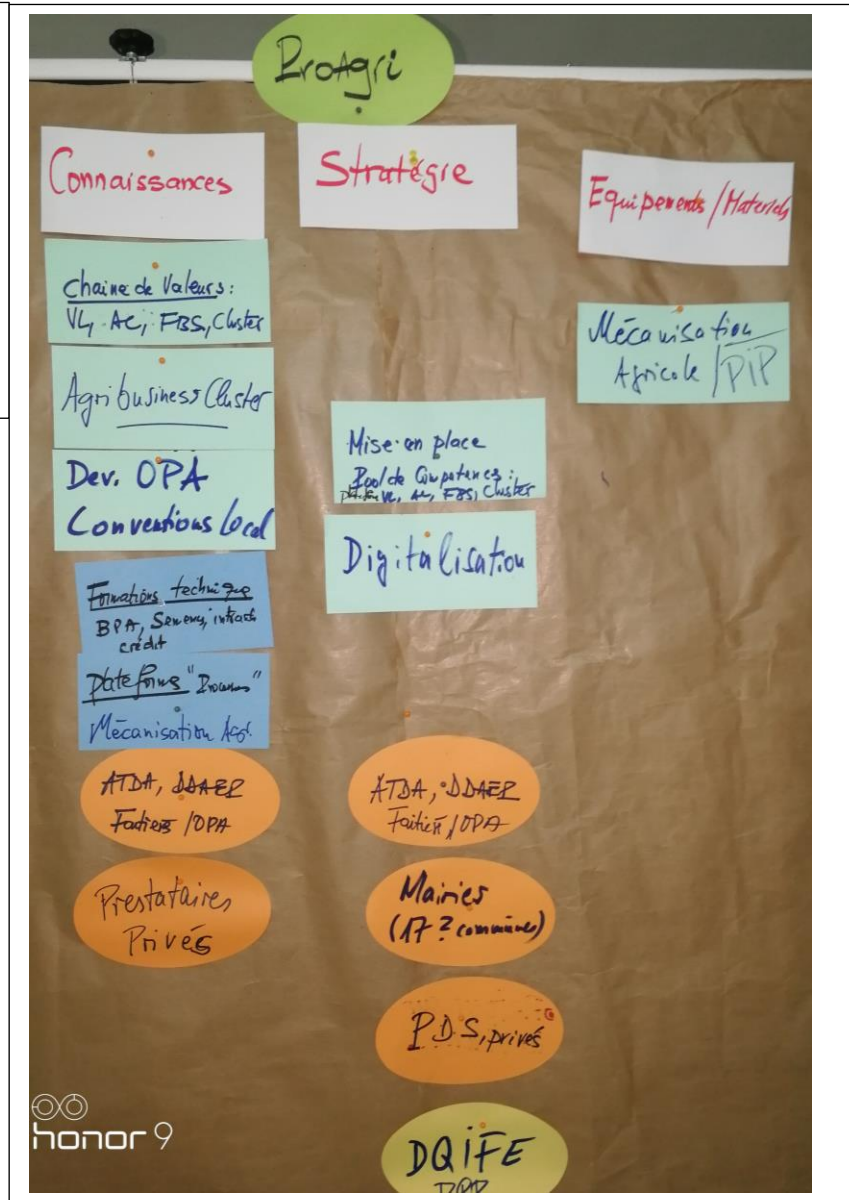 ProAgri
Connaissances
Stratégie
Equipements / Materiels
Chaine de Valeurs:
VL, AC, FBS, Cluster
Agribusiness Cluster
Dev. OPA
Conventions local
Formations technique
BPA, Semens, intrants
crédit
Plateforms
Mécanisation Agri.
ATDA, DDAEP
Faitiers / OPA
Prestataires
Privés
Mise en place
Pool de Compétences:
VL, AC, FBS, Cluster
Digitalisation
ATDA, DDAEP
Faitiers / OPA
Mairies
(17 ? communes)
P.D.S, privés
DQIFE
Mécanisation
Agricole / PIP
honor 9